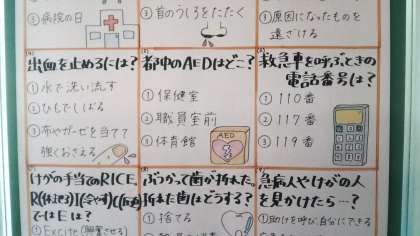 ③病院の日
③首のうしろをたたく
③原因になったものを
遠ざける
出血を止めるには?
①水で洗い流す
②ひもでしばる
③布やガーゼを当てて
強くおさえる
都中のAEDはどこ?
①保健室
②職員室前
③体育館
AED
救急車を呼ぶときの
電話番号は?
①110番
②117番
③119番
けがの手当てのRICE,
R(休ませる)I(冷やす)C(圧迫)
ではEは?
①Excite(興奮させる)
ぶつかって歯が折れた。
折れた歯はどうする?
①捨てる
急病人やけがの人
を見かけたら…?
①助けを呼び,自分にできる